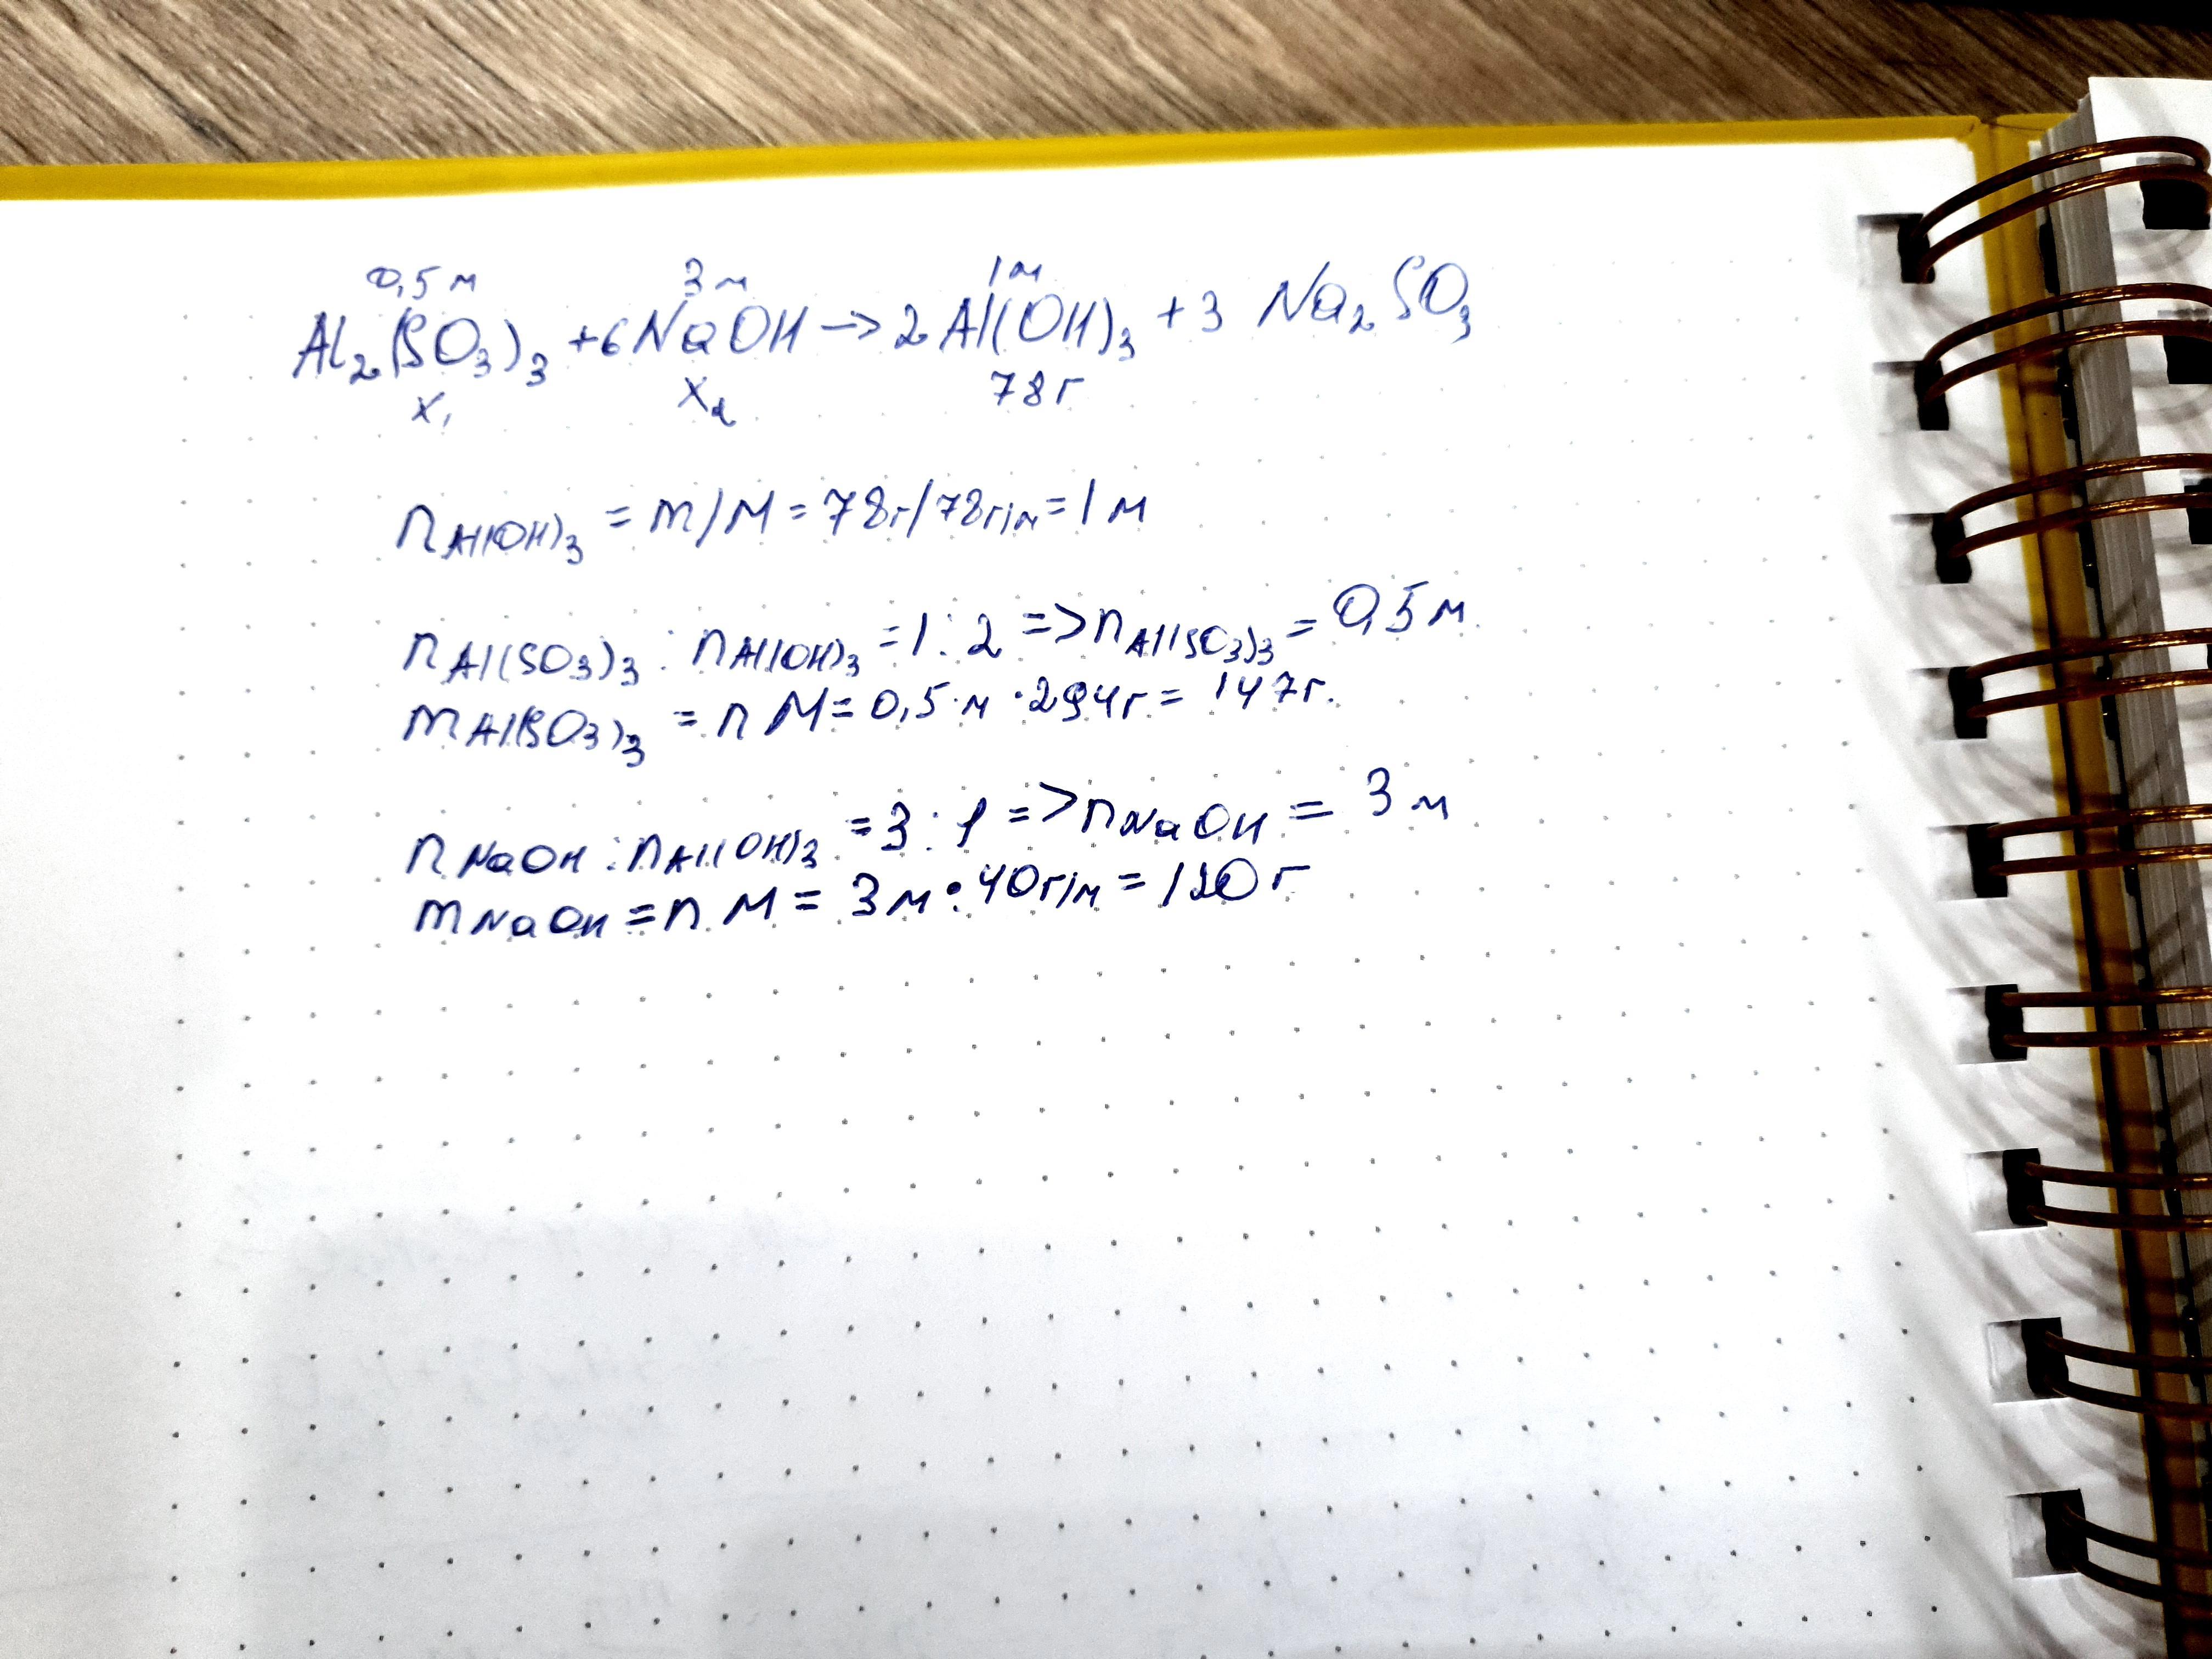 0,5 м 3 м 1 м
Al₂(SO₃)₃ + 6 NaOH -> 2 Al(OH)₃ + 3 Na₂SO₃
x₁ x₂ 78 г
n Al(OH)₃ = m/M = 78г/78г/м = 1 м
n Al(SO₃)₃ : n Al(OH)₃ = 1 : 2 => n Al(SO₃)₃ = 0,5 м
m Al(SO₃)₃ = n M = 0,5 м · 294г = 147г.
n NaOH : n Al(OH)₃ = 3 : 1 => n NaOH = 3 м
m NaOH = n M = 3 м · 40г/м = 120 г